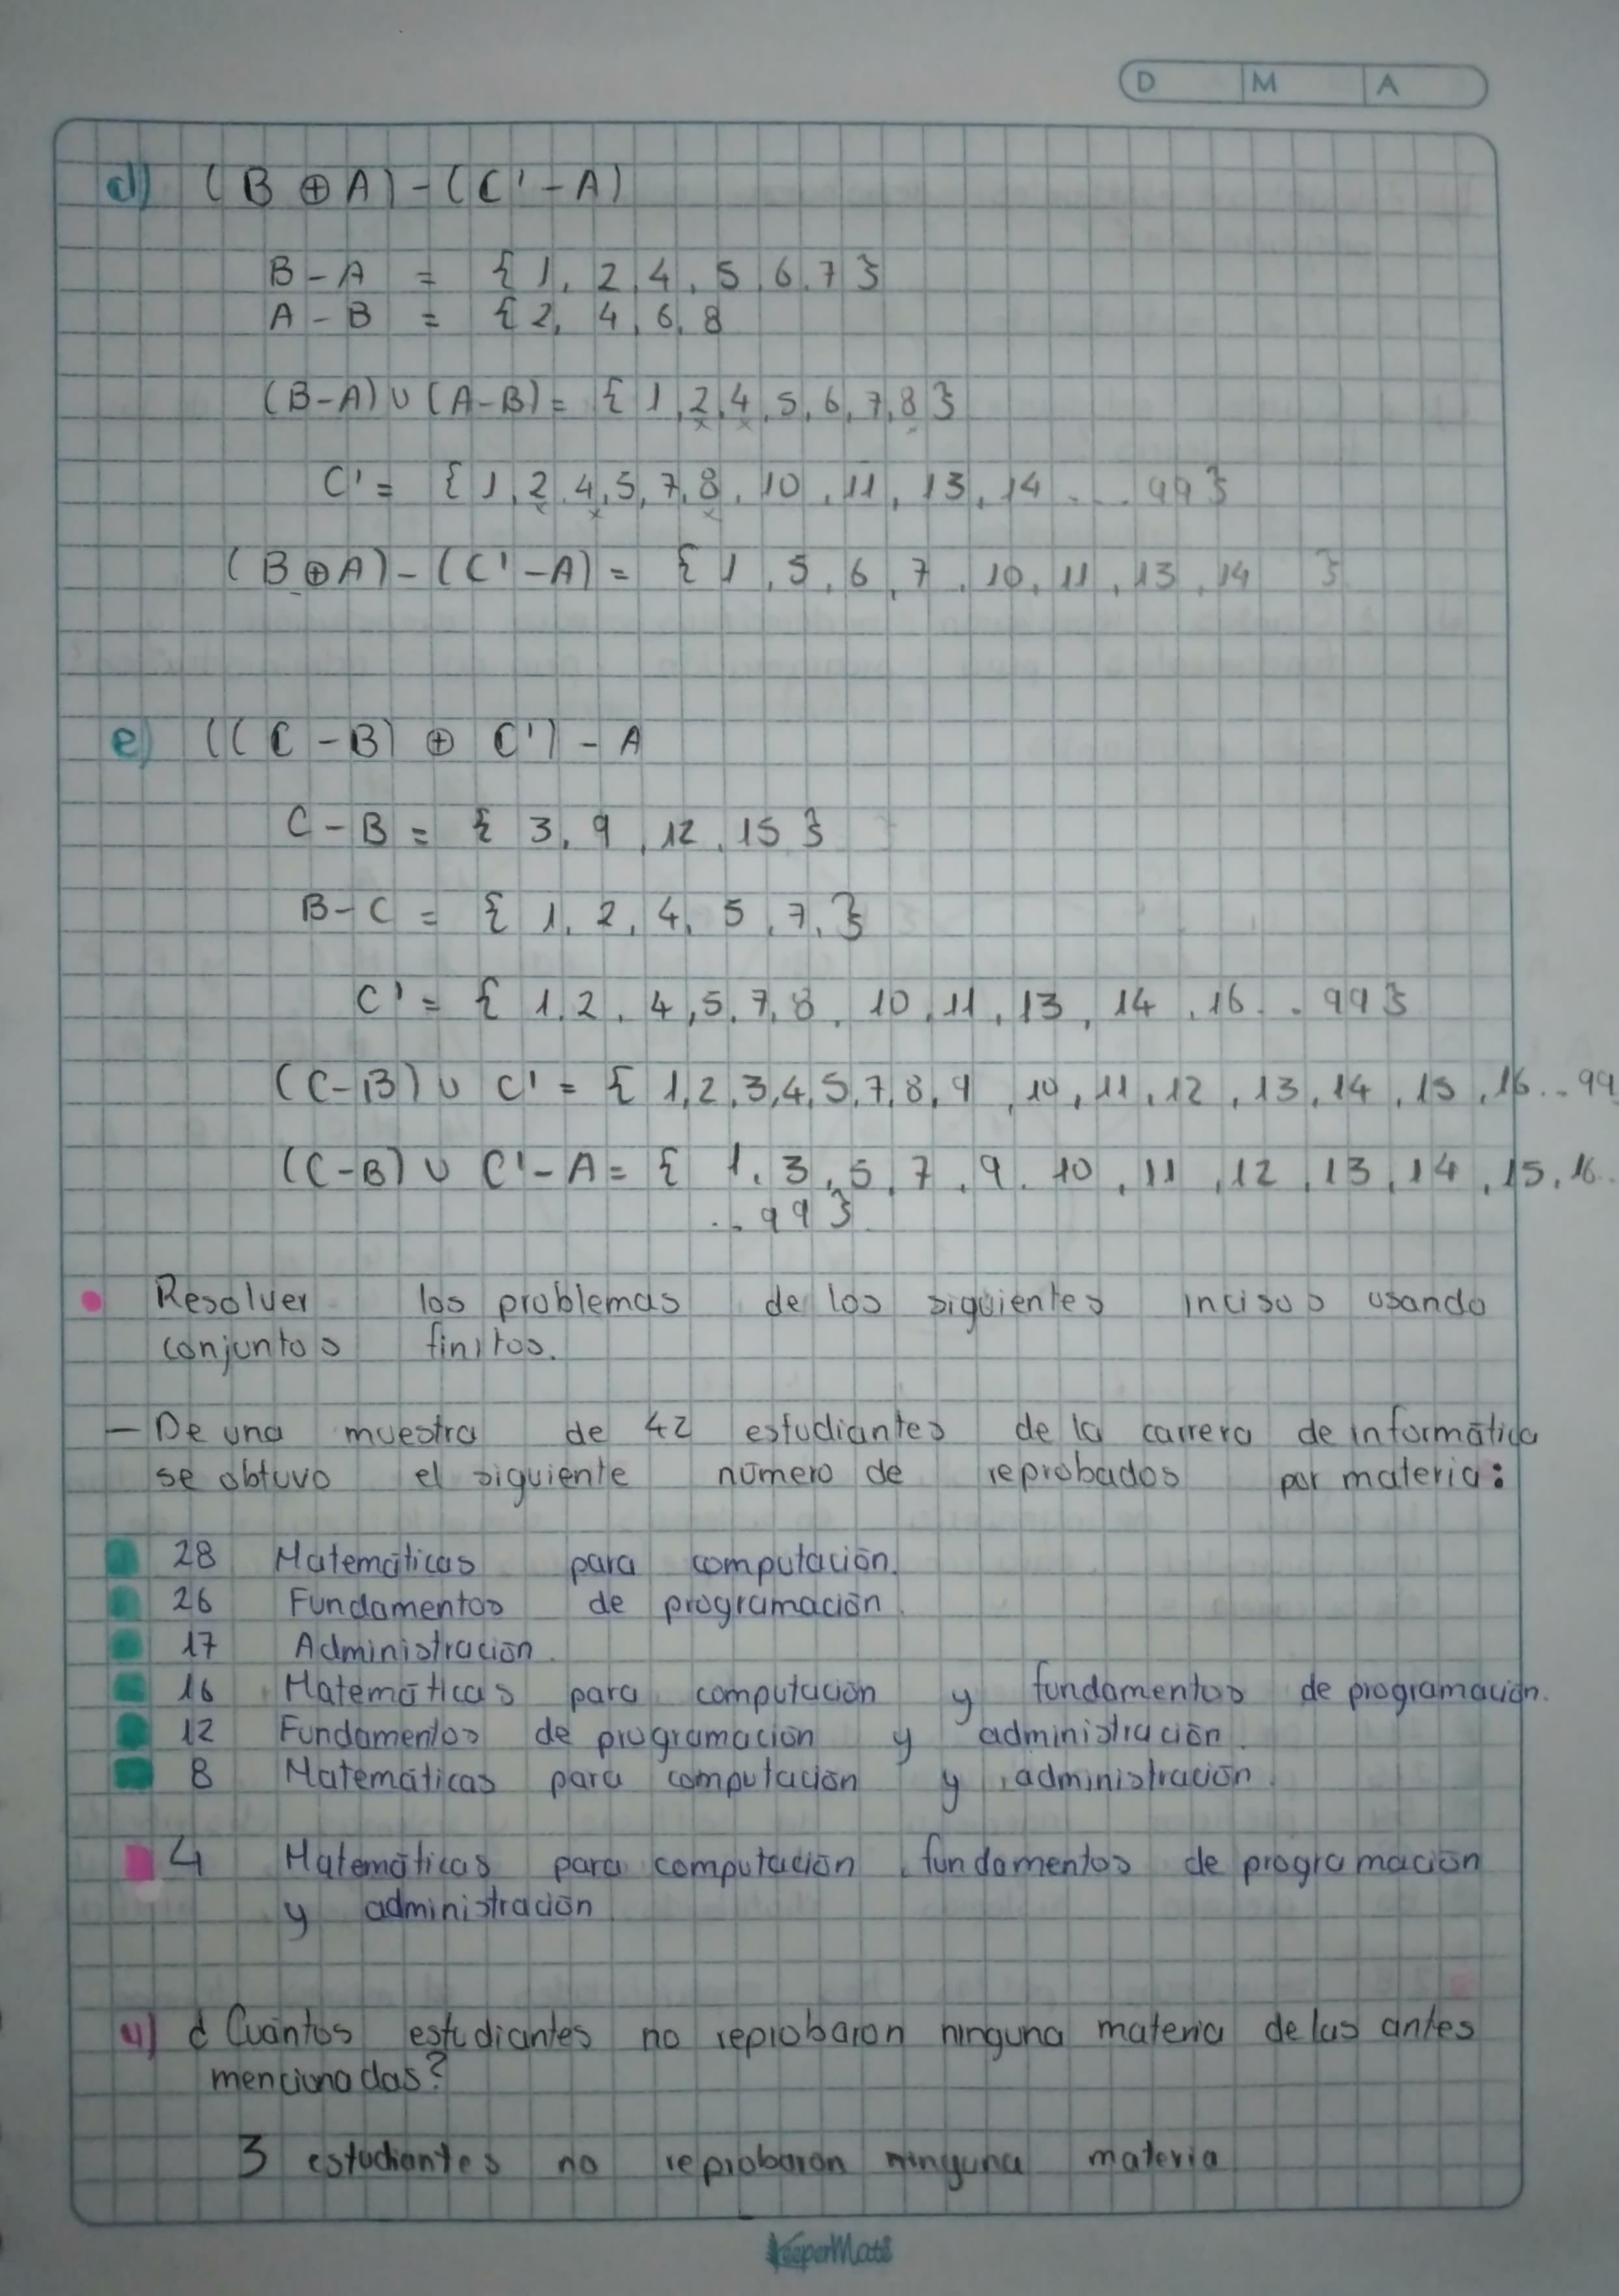 D M A
d) (B ⊕ A) - (C' - A)
B - A = { 1, 2, 4, 5, 6, 7 }
A - B = { 2, 4, 6, 8
(B-A) ∪ (A-B) = { 1, 2, 4, 5, 6, 7, 8 }
C' = { 1, 2, 4, 5, 7, 8, 10, 11, 13, 14 ... 99 }
(B ⊕ A) - (C' - A) = { 1, 5, 6, 7, 10, 11, 13, 14 }
e) ((C - B) ⊕ C') - A
C - B = { 3, 9, 12, 15 }
B - C = { 1, 2, 4, 5, 7, }
C' = { 1, 2, 4, 5, 7, 8, 10, 11, 13, 14, 16 .. 99 }
(C-B) ∪ C' = { 1, 2, 3, 4, 5, 7, 8, 9, 10, 11, 12, 13, 14, 15, 16 .. 99
(C-B) ∪ C' - A = { 1, 3, 5, 7, 9, 10, 11, 12, 13, 14, 15, 16..
... 99 }
• Resolver los problemas de los siguientes incisos usando
conjuntos finitos.
- De una muestra de 42 estudiantes de la carrera de informática
se obtuvo el siguiente número de reprobados por materia:
28 Matemáticas para computación.
26 Fundamentos de programación.
17 Administración.
16 Matemáticas para computación y fundamentos de programación.
12 Fundamentos de programación y administración.
8 Matemáticas para computación y administración.
4 Matemáticas para computación, fundamentos de programación
y administración
a) ¿Cuántos estudiantes no reprobaron ninguna materia de las antes
mencionadas?
3 estudiantes no reprobaron ninguna materia
KeeperMate